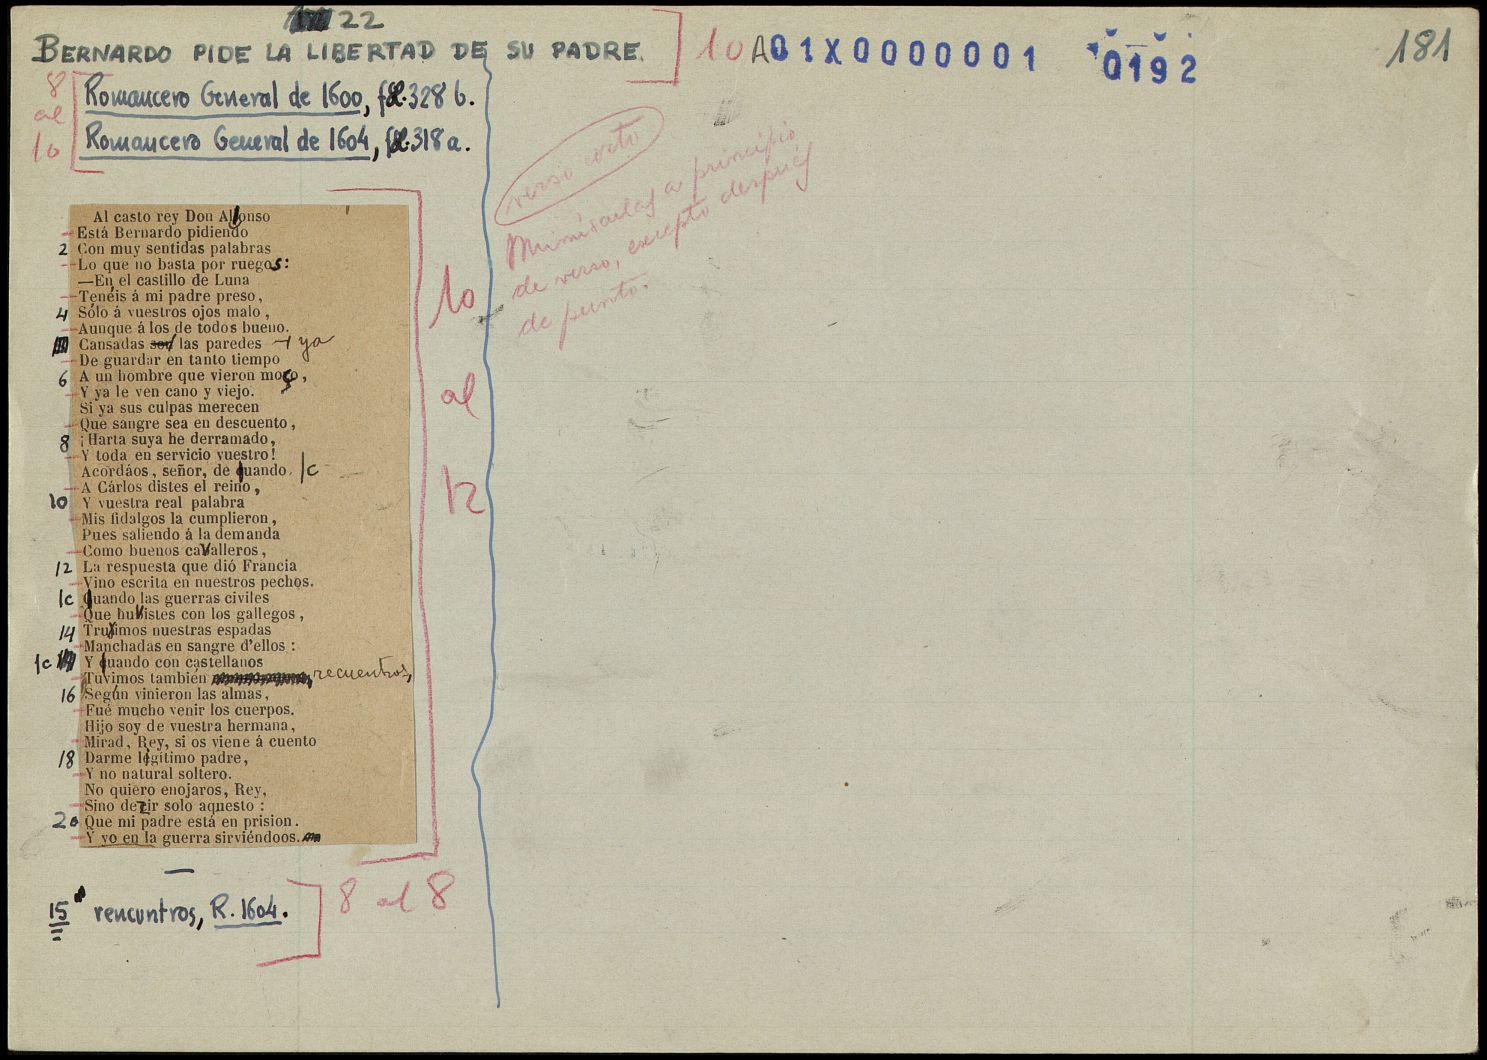 22
BERNARDO PIDE LA LIBERTAD DE SU PADRE.
10
A01X0000001
0192
181
8 al 10
Romancero General de 1600, fol. 328 b.
Romancero General de 1604, fol. 318 a.
verso corto
Minúsculas a principio
de verso, excepto después
de punto.
Al casto rey Don Alfonso
Está Bernardo pidiendo
2 Con muy sentidas palabras
Lo que no basta por ruegos:
—En el castillo de Luna
Tenéis á mi padre preso,
4 Sólo á vuestros ojos malo,
Aunque á los de todos bueno.
Cansadas son las paredes ya
De guardar en tanto tiempo
6 A un hombre que vieron moço,
Y ya le ven cano y viejo.
Si ya sus culpas merecen
Que sangre sea en descuento,
8 ¡Harta suya he derramado,
Y toda en servicio vuestro!
Acordáos, señor, de cuando /c
A Cárlos distes el reino,
10 Y vuestra real palabra
Mis fidalgos la cumplieron,
Pues saliendo á la demanda
Como buenos cavalleros,
12 La respuesta que dió Francia
Vino escrita en nuestros pechos.
/c Cuando las guerras civiles
Que huvistes con los gallegos,
14 Truximos nuestras espadas
Manchadas en sangre d'ellos:
/c Y cuando con castellanos
Tuvimos también recuentros,
16 Según vinieron las almas,
Fué mucho venir los cuerpos.
Hijo soy de vuestra hermana,
Mirad, Rey, si os viene á cuento
18 Darme legítimo padre,
Y no natural soltero.
No quiero enojaros, Rey,
Sino dezir solo aquesto:
20 Que mi padre está en prision.
Y yo en la guerra sirviéndoos.
10
al
12
15 rencuntros, R. 1604.
8 al 8